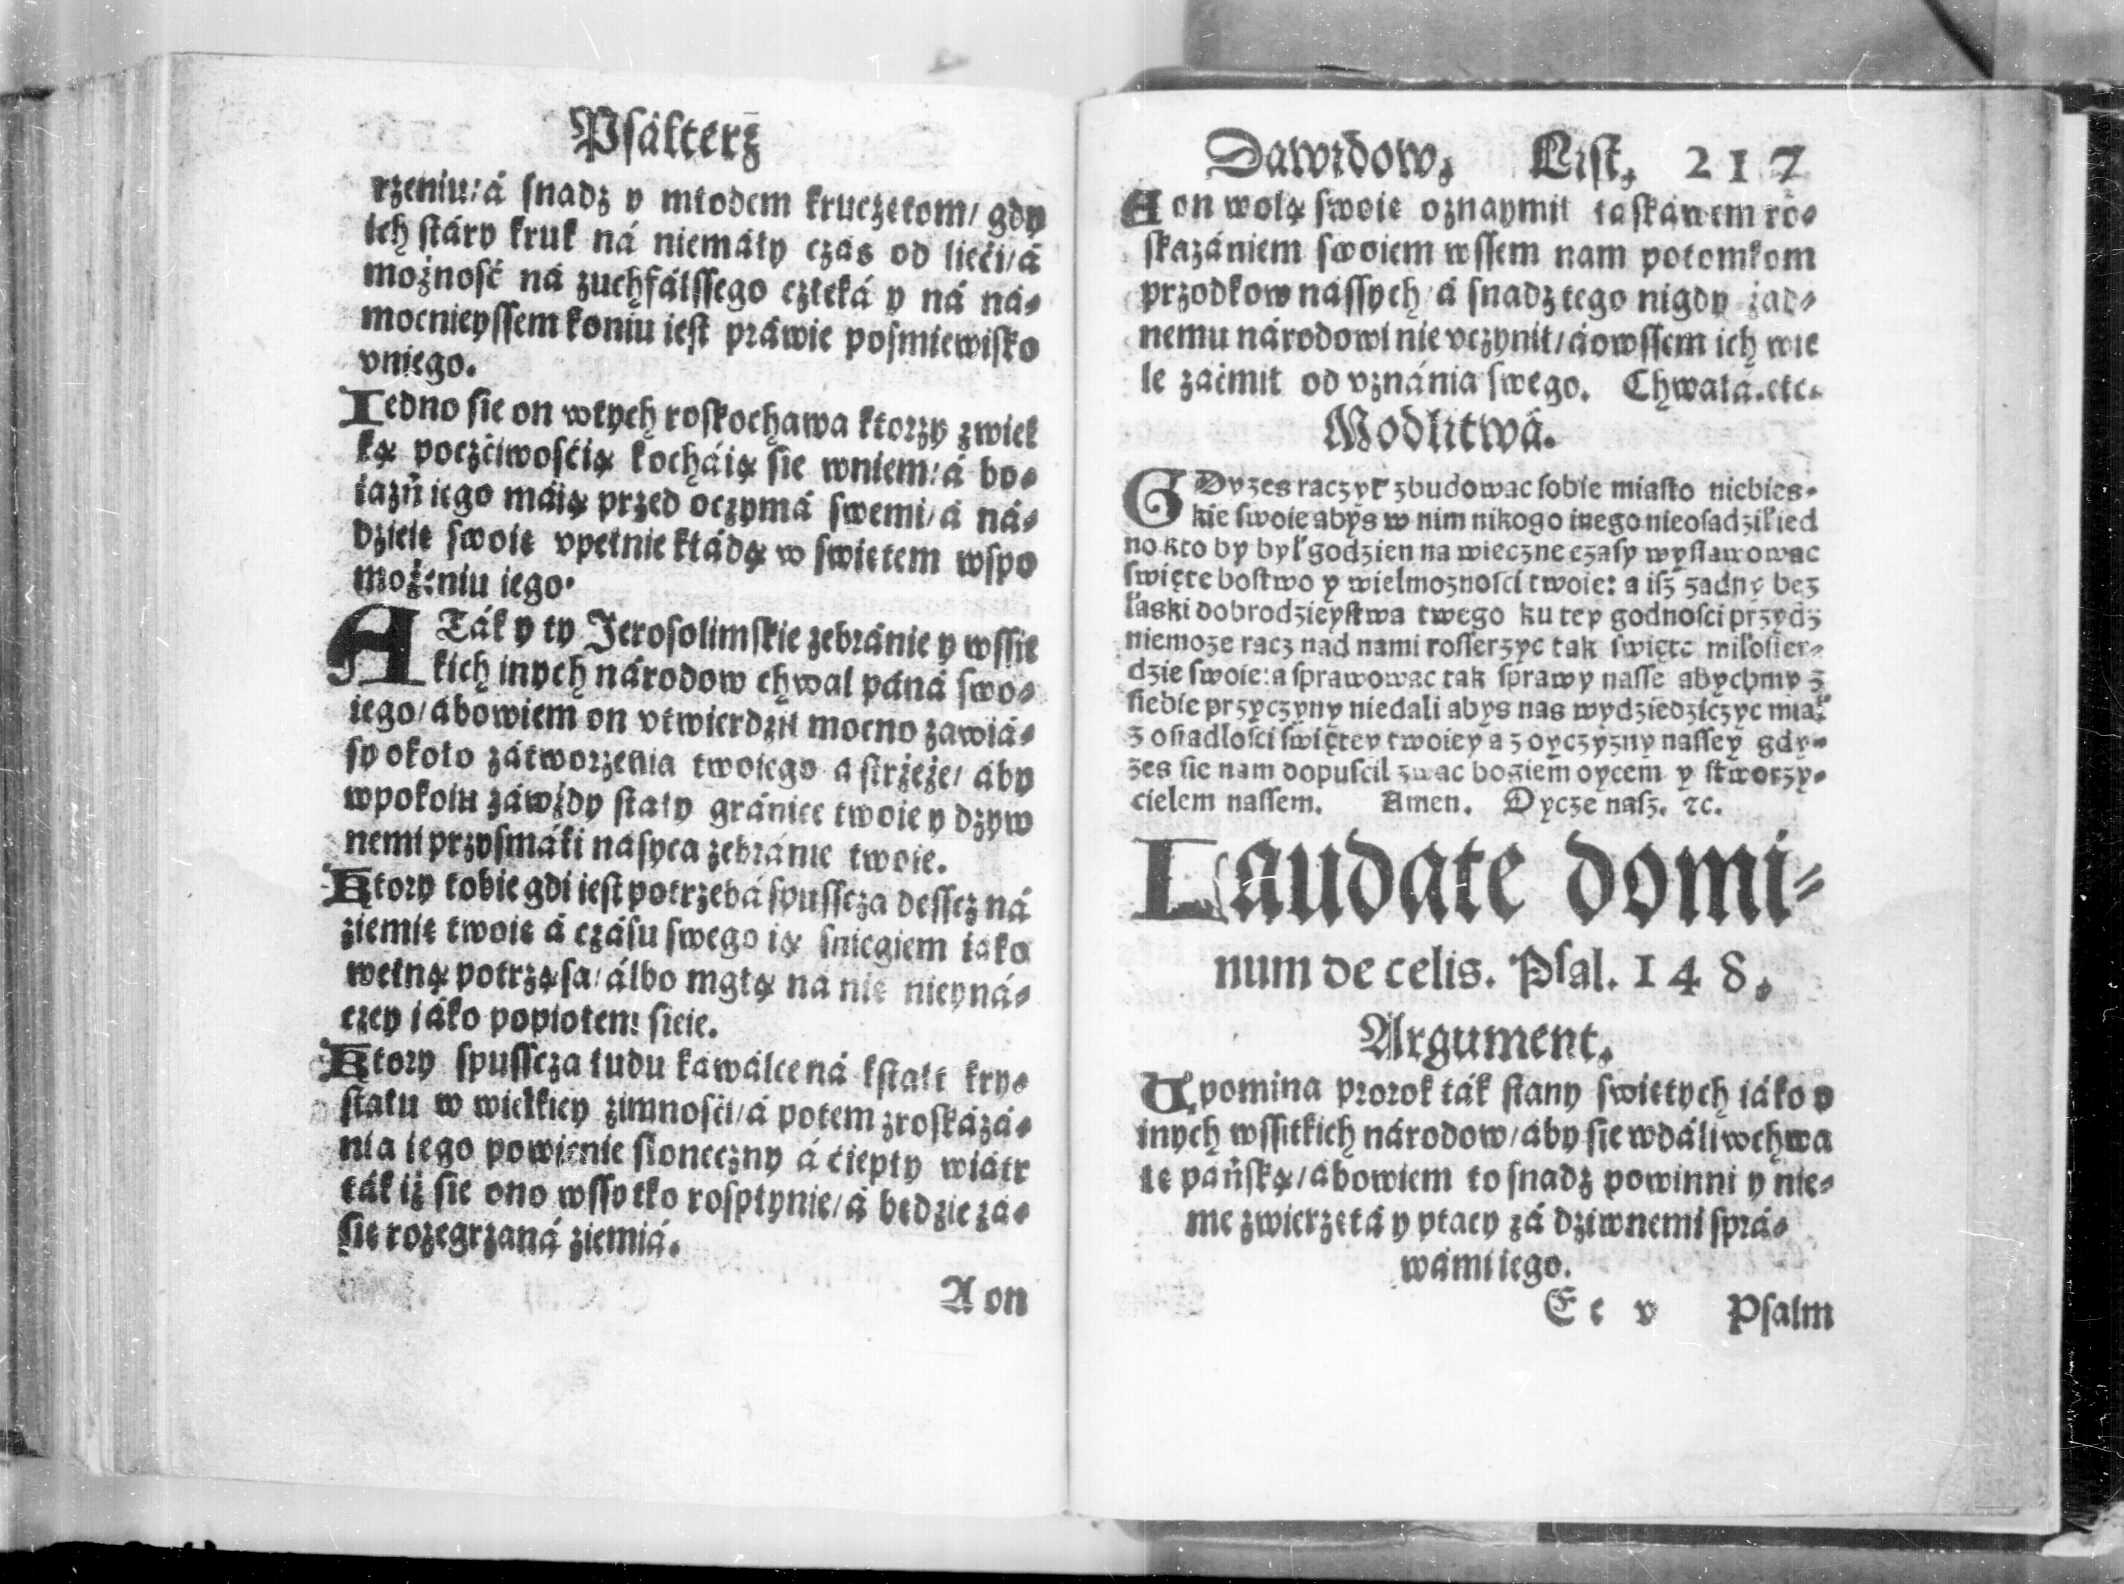 Psálterz
rzeniu/ á snadz y młodem kruczętom/ gdy
ich stáry kruk ná niemáły czás od lieći/ á
możność ná zuchfálssego człeká y ná ná-
mocnieyssem koniu iest práwie pośmiewisko
vniego.
Iedno sie on wtych roskochawa ktorzy zwiel
ką poczćiwośćią kocháią sie wniem/ á bo-
iazń iego máią przed oczymá swemi/ á ná-
dzieię swoię vpełnie kłádą w swiętem wspo
możeniu iego.
A Ták y ty Jerosolimskie zebránie y wssit
kich inych národow chwal páná swo-
iego/ ábowiem on vtwierdził mocno zawiá-
sy około zátworzenia twoiego a strzeże/ áby
wpokoiu záwżdy stały gránice twoie y dzyw
nemi przysmáki násyca zebránie twoie.
Ktory tobie gdi iest potrzebá spusscza desscz ná
ziemię twoię á czásu swego ią sniegiem iako
wełną potrząsa/ álbo mgłą na nię nieyná-
czey iáko popiołem sieie.
Ktory spusscza ludu kawálce ná kstałt kry-
stału w wielkiey zimnośći/ á potem zroskázá-
nia iego powienie słoneczny á ćiepły wiátr
ták iż sie ono wssytko rospłynie/ á będzie zá-
się rozegrzaná ziemiá.
A on
Dawidow, List, 217
A on wolą swoię oznaymił łaskáwem ro-
skazániem swoiem wssem nam potomkom
przodkow nássych/ á snadz tego nigdy żad-
nemu národowi nie vczynił/ áowssem ich wie
le zaćmił od vznánia swego. Chwałá. etc.
Modlitwá.
GDyzes raczył zbudowac sobie miasto niebies-
kie swoie abys w nim nikogo inego nieosadził ied
no kto by był godzien na wieczne czasy wysławowac
swięte bostwo y wielmoznosci twoie: a isz zadny bez
łaski dobrodzieystwa twego ku tey godnosci przydz
niemoze racz nad nami rosserzyc tak swięte miłosier-
dzie swoie: a sprawowac tak sprawy nasse abychmy z
siebie przyczyny niedali abys nas wydziedziczyc miał
z osiadlosci swiętey twoiey a z oyczyzny nassey gdy-
zes sie nam dopuscil zwac bogiem oycem y stworzy-
cielem nassem. Amen. Oycze nasz. ⁊c.
Laudate domi-
num de celis. Psal. 148.
Argument.
Upomina prorok ták stany swiętych iáko y
inych wssitkich národow/ áby sie wdáli wchwa
łę páńską/ ábowiem to snadz powinni y nie-
me zwierzętá y ptacy zá dziwnemi sprá-
wámi iego.
E e v Psalm